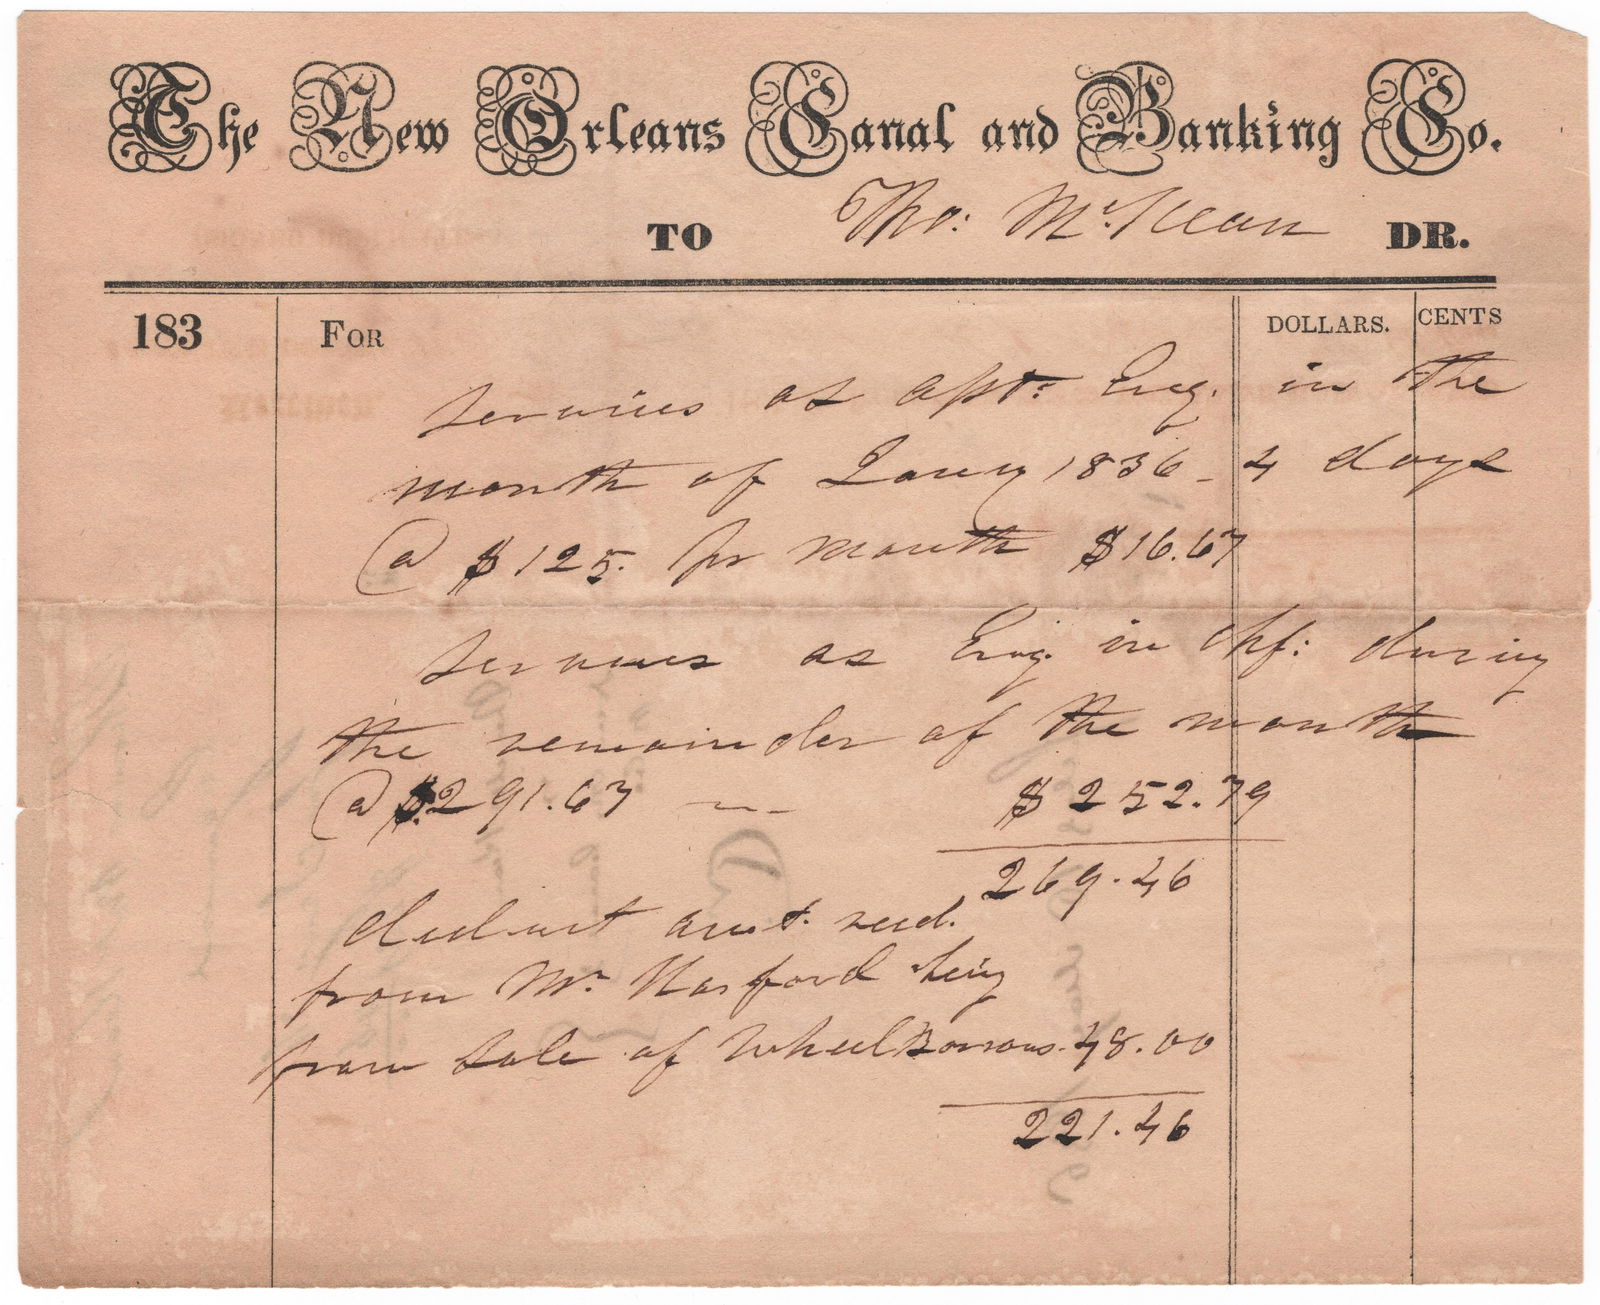 The New Orleans Canal and Banking Co.
TO Tho: McKean DR.
183 FOR DOLLARS. CENTS
services as asst: Eng. in the
month of Jany 1836 - 4 days
@ $125. pr month $16.67
services as Eng. in chf: during
the remainder of the month
@ $291.67 $252.79
269.46
deduct amt. recd.
from Mr Harford being
from sale of WheelBarrows. 48.00
221.46